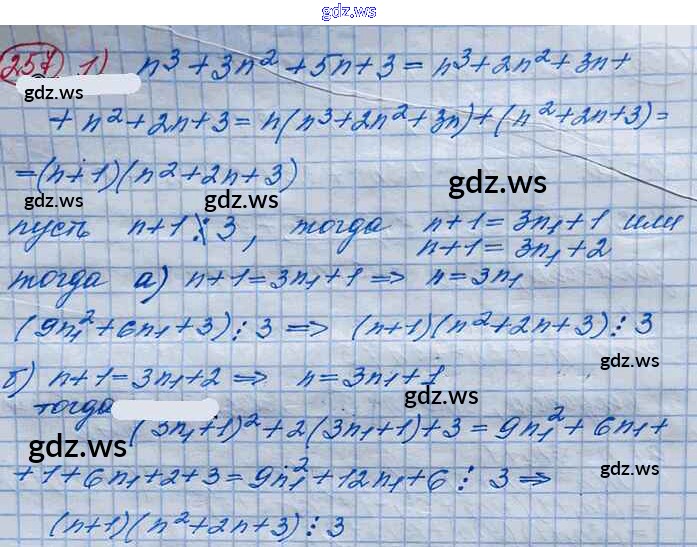 gdz.ws
257 1) n³ + 3n² + 5n + 3 = n³ + 2n² + 3n +
gdz.ws
+ n² + 2n + 3 = n(n³ + 2n² + 3n) + (n² + 2n + 3) =
= (n + 1)(n² + 2n + 3)
gdz.ws
gdz.ws gdz.ws
пусть n+1 ⋮̸ 3, тогда n+1 = 3n₁ + 1 или
n+1 = 3n₁ + 2
тогда а) n+1 = 3n₁ + 1 => n = 3n₁
(9n₁² + 6n₁ + 3) ⋮ 3 => (n+1)(n² + 2n + 3) ⋮ 3
gdz.ws
б) n+1 = 3n₁ + 2 => n = 3n₁ + 1
gdz.ws
тогда
(3n₁ + 1)² + 2(3n₁ + 1) + 3 = 9n₁² + 6n₁ +
gdz.ws
+ 1 + 6n₁ + 2 + 3 = 9n₁² + 12n₁ + 6 ⋮ 3 =>
gdz.ws
(n+1)(n² + 2n + 3) ⋮ 3
gdz.ws